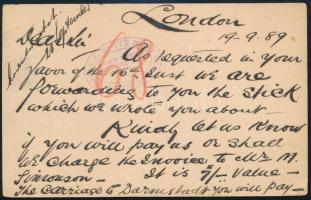 London
19.9.89
Dear Sir
As requested in your
favor of the 16th Inst we are
forwarding to you the stick
which we wrote you about -
Kindly let us know
if you will pay us or shall
we charge the Invoice to Mr M.
Simonson - It is 5/- Value -
The Carriage to Darmstadt you will pay -